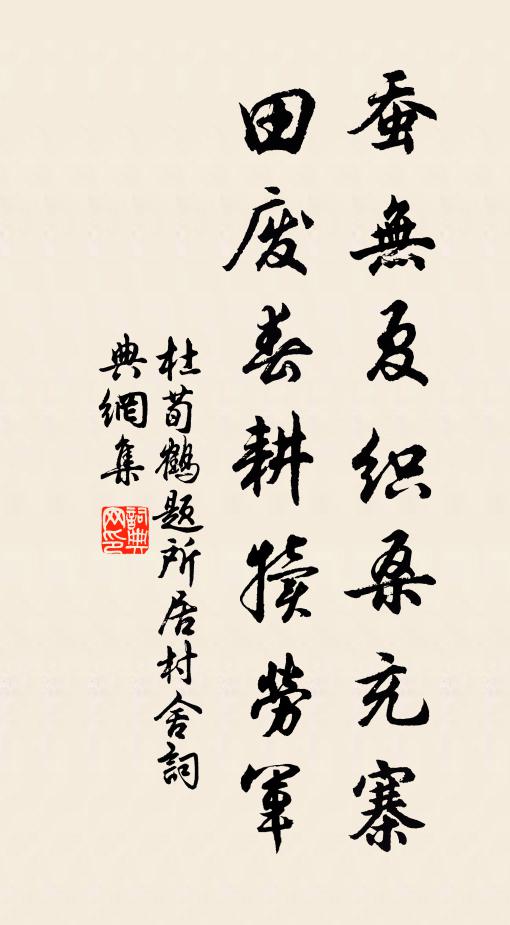 蚕無夏织桑充寨
田废春耕犊劳軍
杜荀鶴題所居村舍詞
典網集
詞典
网印